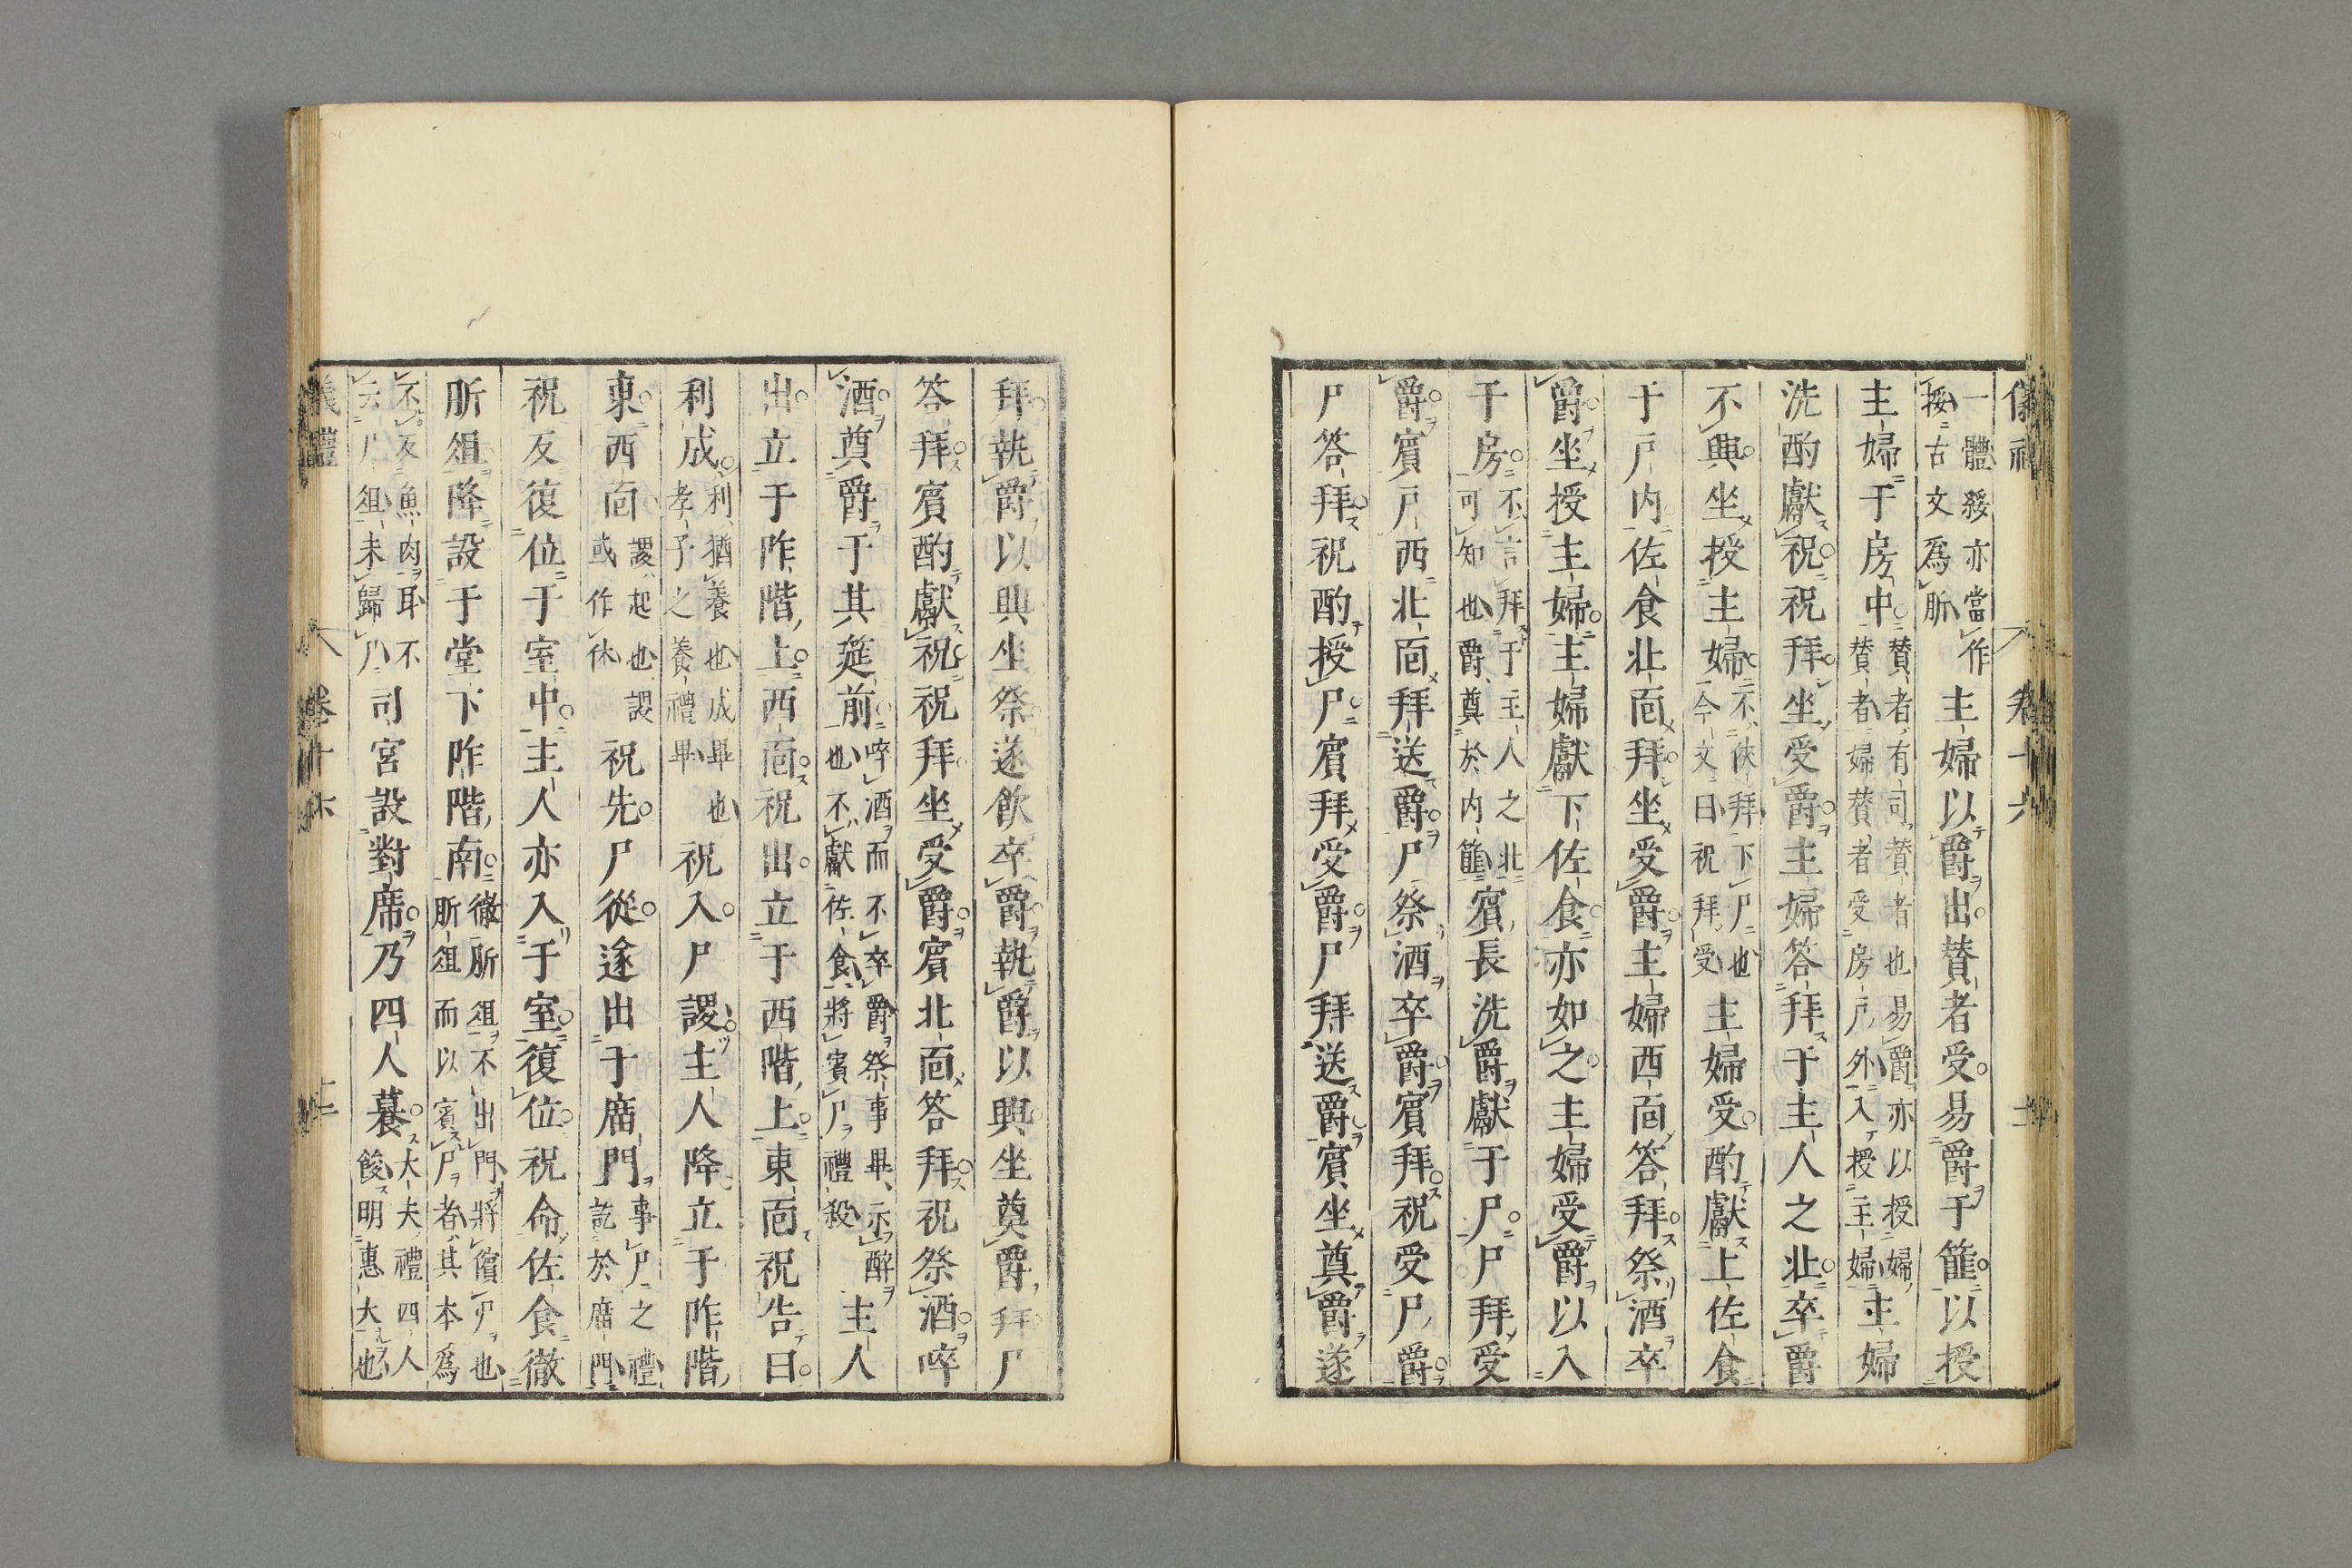 儀禮　卷十六
一體綏亦當作挼古文爲肵主婦以爵出贊者受易爵于篚以授
主婦于房中贊者有司贊者也易爵亦以授婦贊者婦贊者受房戸外入授主婦主婦
洗酌獻祝祝拜坐受爵主婦答拜于主人之北卒爵
不興坐授主婦不俠拜下尸也今文曰祝拜受主婦受酌獻上佐食
于戸内佐食北面拜坐受爵主婦西面答拜祭酒卒
爵坐授主婦主婦獻下佐食亦如之主婦受爵以入
于房不言拜于主人之北可知也爵奠於内篚賓長洗爵獻于尸尸拜受
爵賓戸西北面拜送爵尸祭酒卒爵賓拜祝受尸爵
尸答拜祝酌授尸賓拜受爵尸拜送爵賓坐奠爵遂
拜執爵以興坐祭遂飲卒爵執爵以興坐奠爵拜尸
答拜賓酌獻祝祝拜坐受爵賓北面答拜祝祭酒啐
酒奠爵于其筵前啐酒而不卒爵祭事畢示醉也不獻佐食將賓尸禮殺主人
出立于阼階上西面祝出立于西階上東面祝告曰
利成利猶養也成畢也孝子之養禮畢祝入尸謖主人降立于阼階
東西面謖起也謖或作休祝先尸從遂出于廟門事尸之禮訖於廟門
祝反復位于室中主人亦入于室復位祝命佐食徹
肵俎降設于堂下阼階南徹肵俎不出門將儐尸也肵俎而以賓尸者其本爲
不反魚肉耳不云尸俎未歸尸司宮設對席乃四人䉵大夫禮四人餕明惠大也
儀禮　卷十六　十二